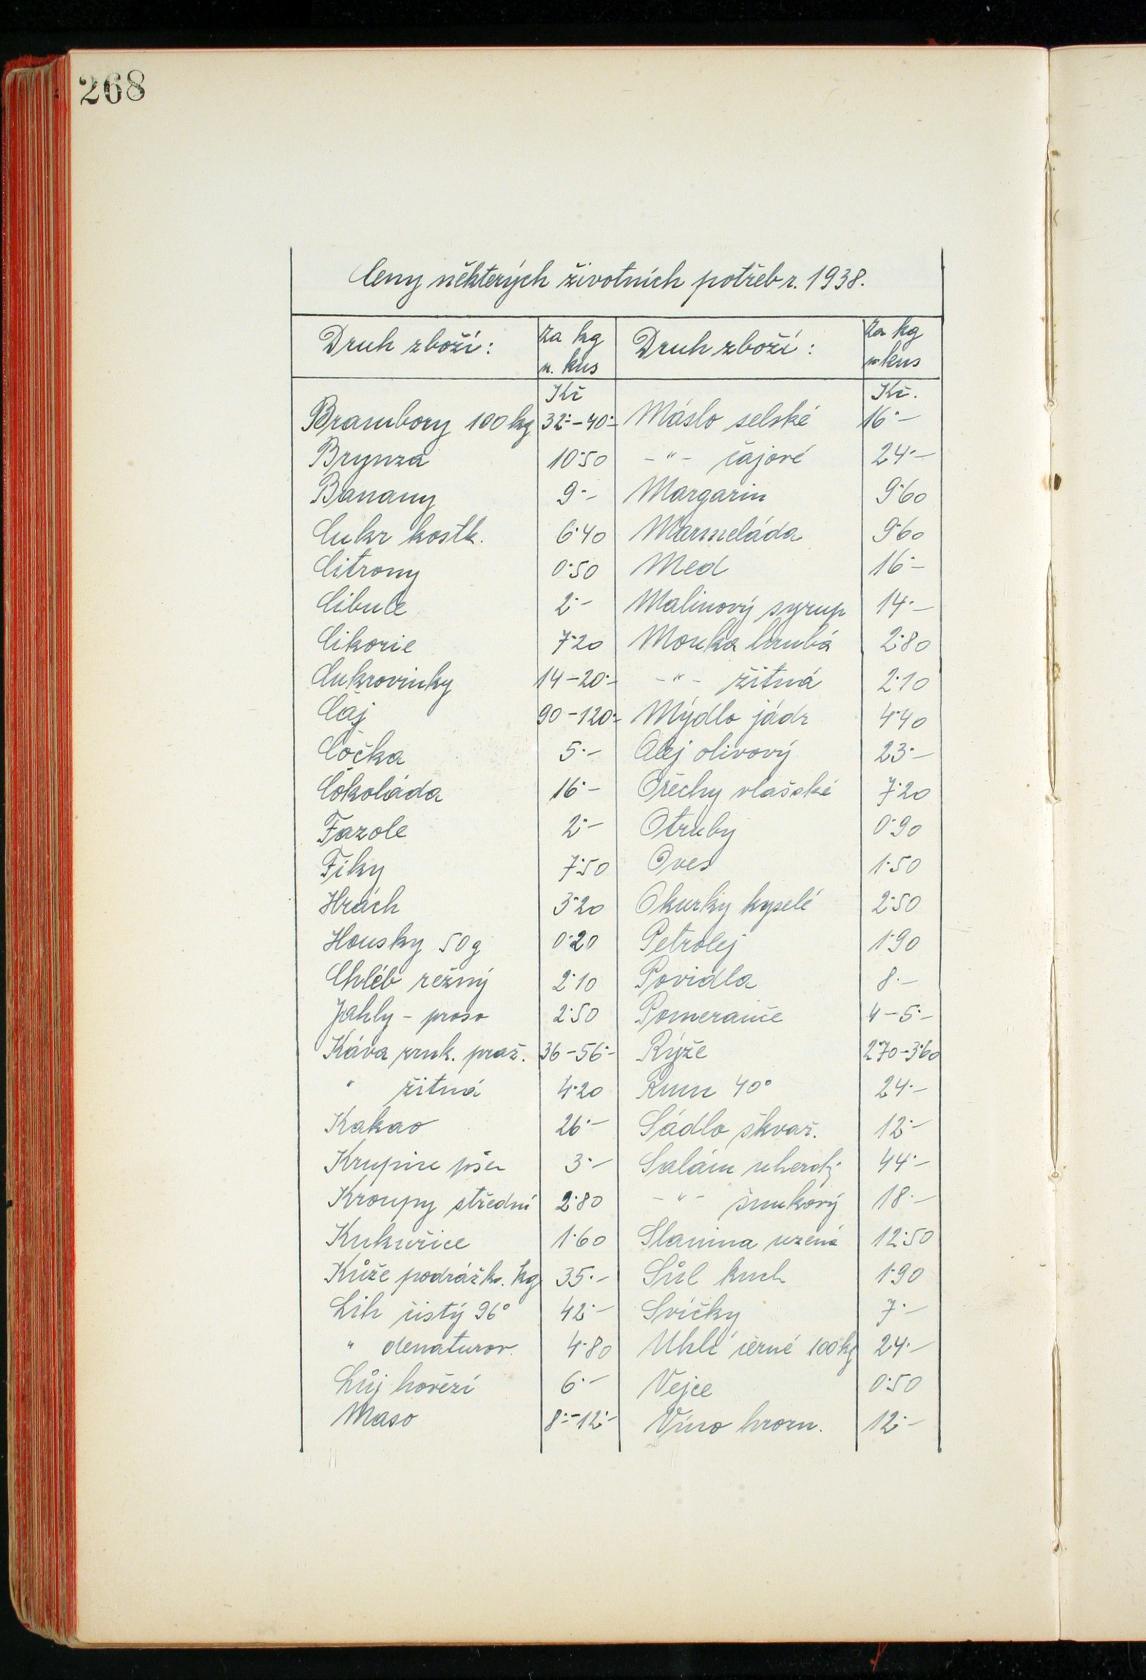 268
Ceny některých životních potřeb r. 1938.
Druh zboží: za kg n. kus Druh zboží: za kg n. kus
Kč Kč.
Brambory 100 kg 32·-40·- Máslo selské 16·-
Brynza 10·50 -"- čajové 24·-
Banany 9·- Margarin 9·60
Cukr kostk. 6·40 Marmeláda 9·60
Citrony 0·50 Med 16·-
Cibule 2·- Malinový syrup 14·-
Cikorie 7·20 Mouka hrubá 2·80
Cukrovinky 14-20·- -"- žitná 2·10
Čaj 90-120·- Mýdlo jádr 4·40
Čočka 5·- Olej olivový 23·-
Čokoláda 16·- Ořechy vlašské 7·20
Fazole 2·- Otruby 0·90
Fíky 7·50 Oves 1·50
Hrách 3·20 Okurky kyselé 2·50
Housky 50g 0·20 Petrolej 1·90
Chléb režný 2·10 Povidla 8·-
Jáhly - proso 2·50 Pomeranče 4-5·-
Káva zrnk. praž. 36-56·- Rýže 2·70-3·60
" žitná 4·20 Rum 40° 24·-
Kakao 26·- Sádlo škvař. 12·-
Krupice pšen 3·- Salám uhersk. 44·-
Kroupy střední 2·80 -"- šunkový 18·-
Kukuřice 1·60 Slanina uzená 12·50
Kůže podrážko. kg 35·- Sůl kuch 1·90
Líh čistý 96° 42·- Svíčky 7·-
" denaturov. 4·80 Uhlí černé 100 kg 24·-
Lůj hovězí 6·- Vejce 0·50
Maso 8·-12·- Víno hrozn. 12·-